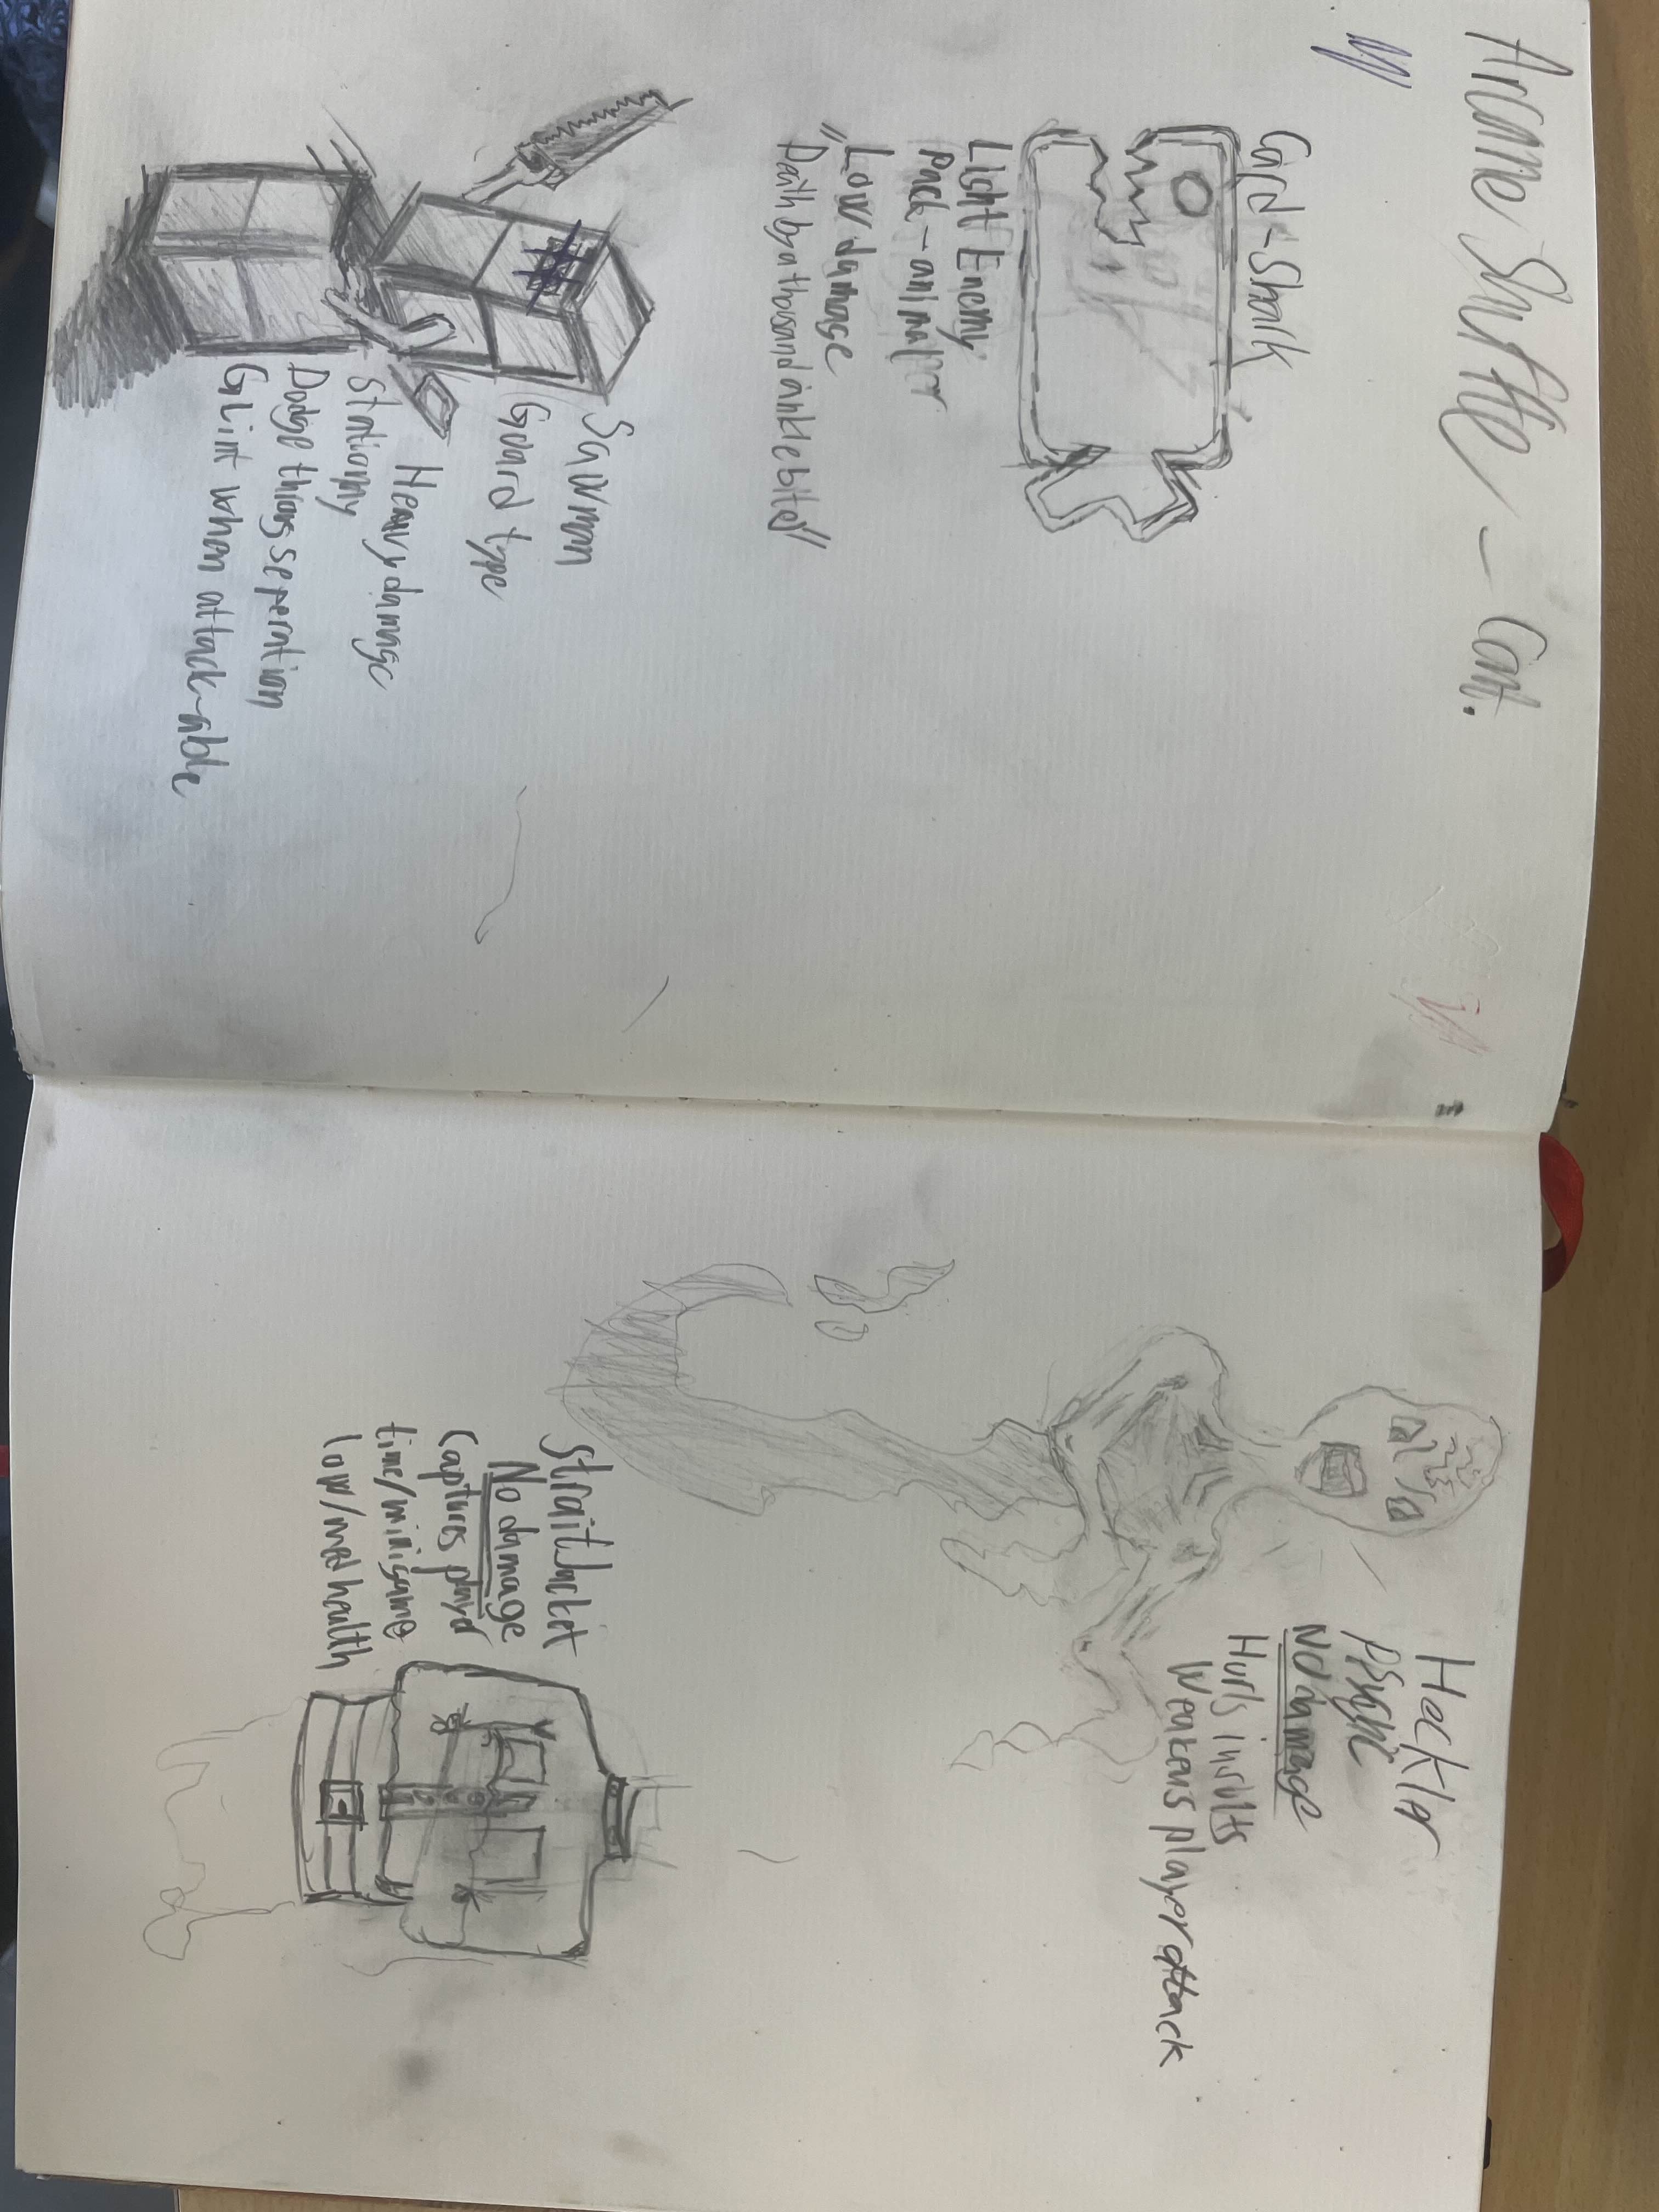 Arcane Shuffle - Cont.
Card-Shark
Light Enemy
pack-animal
Low damage
"Death by a thousand ankle bites"
Sawman
Guard type
Heavy damage
Stationary
Dodge things seperation
Glint when attack-able
Heckler
psychic
No damage
Hurls insults
Weakens player attack
Strait Jacket
No damage
Captures player
time/minigame
low/med health